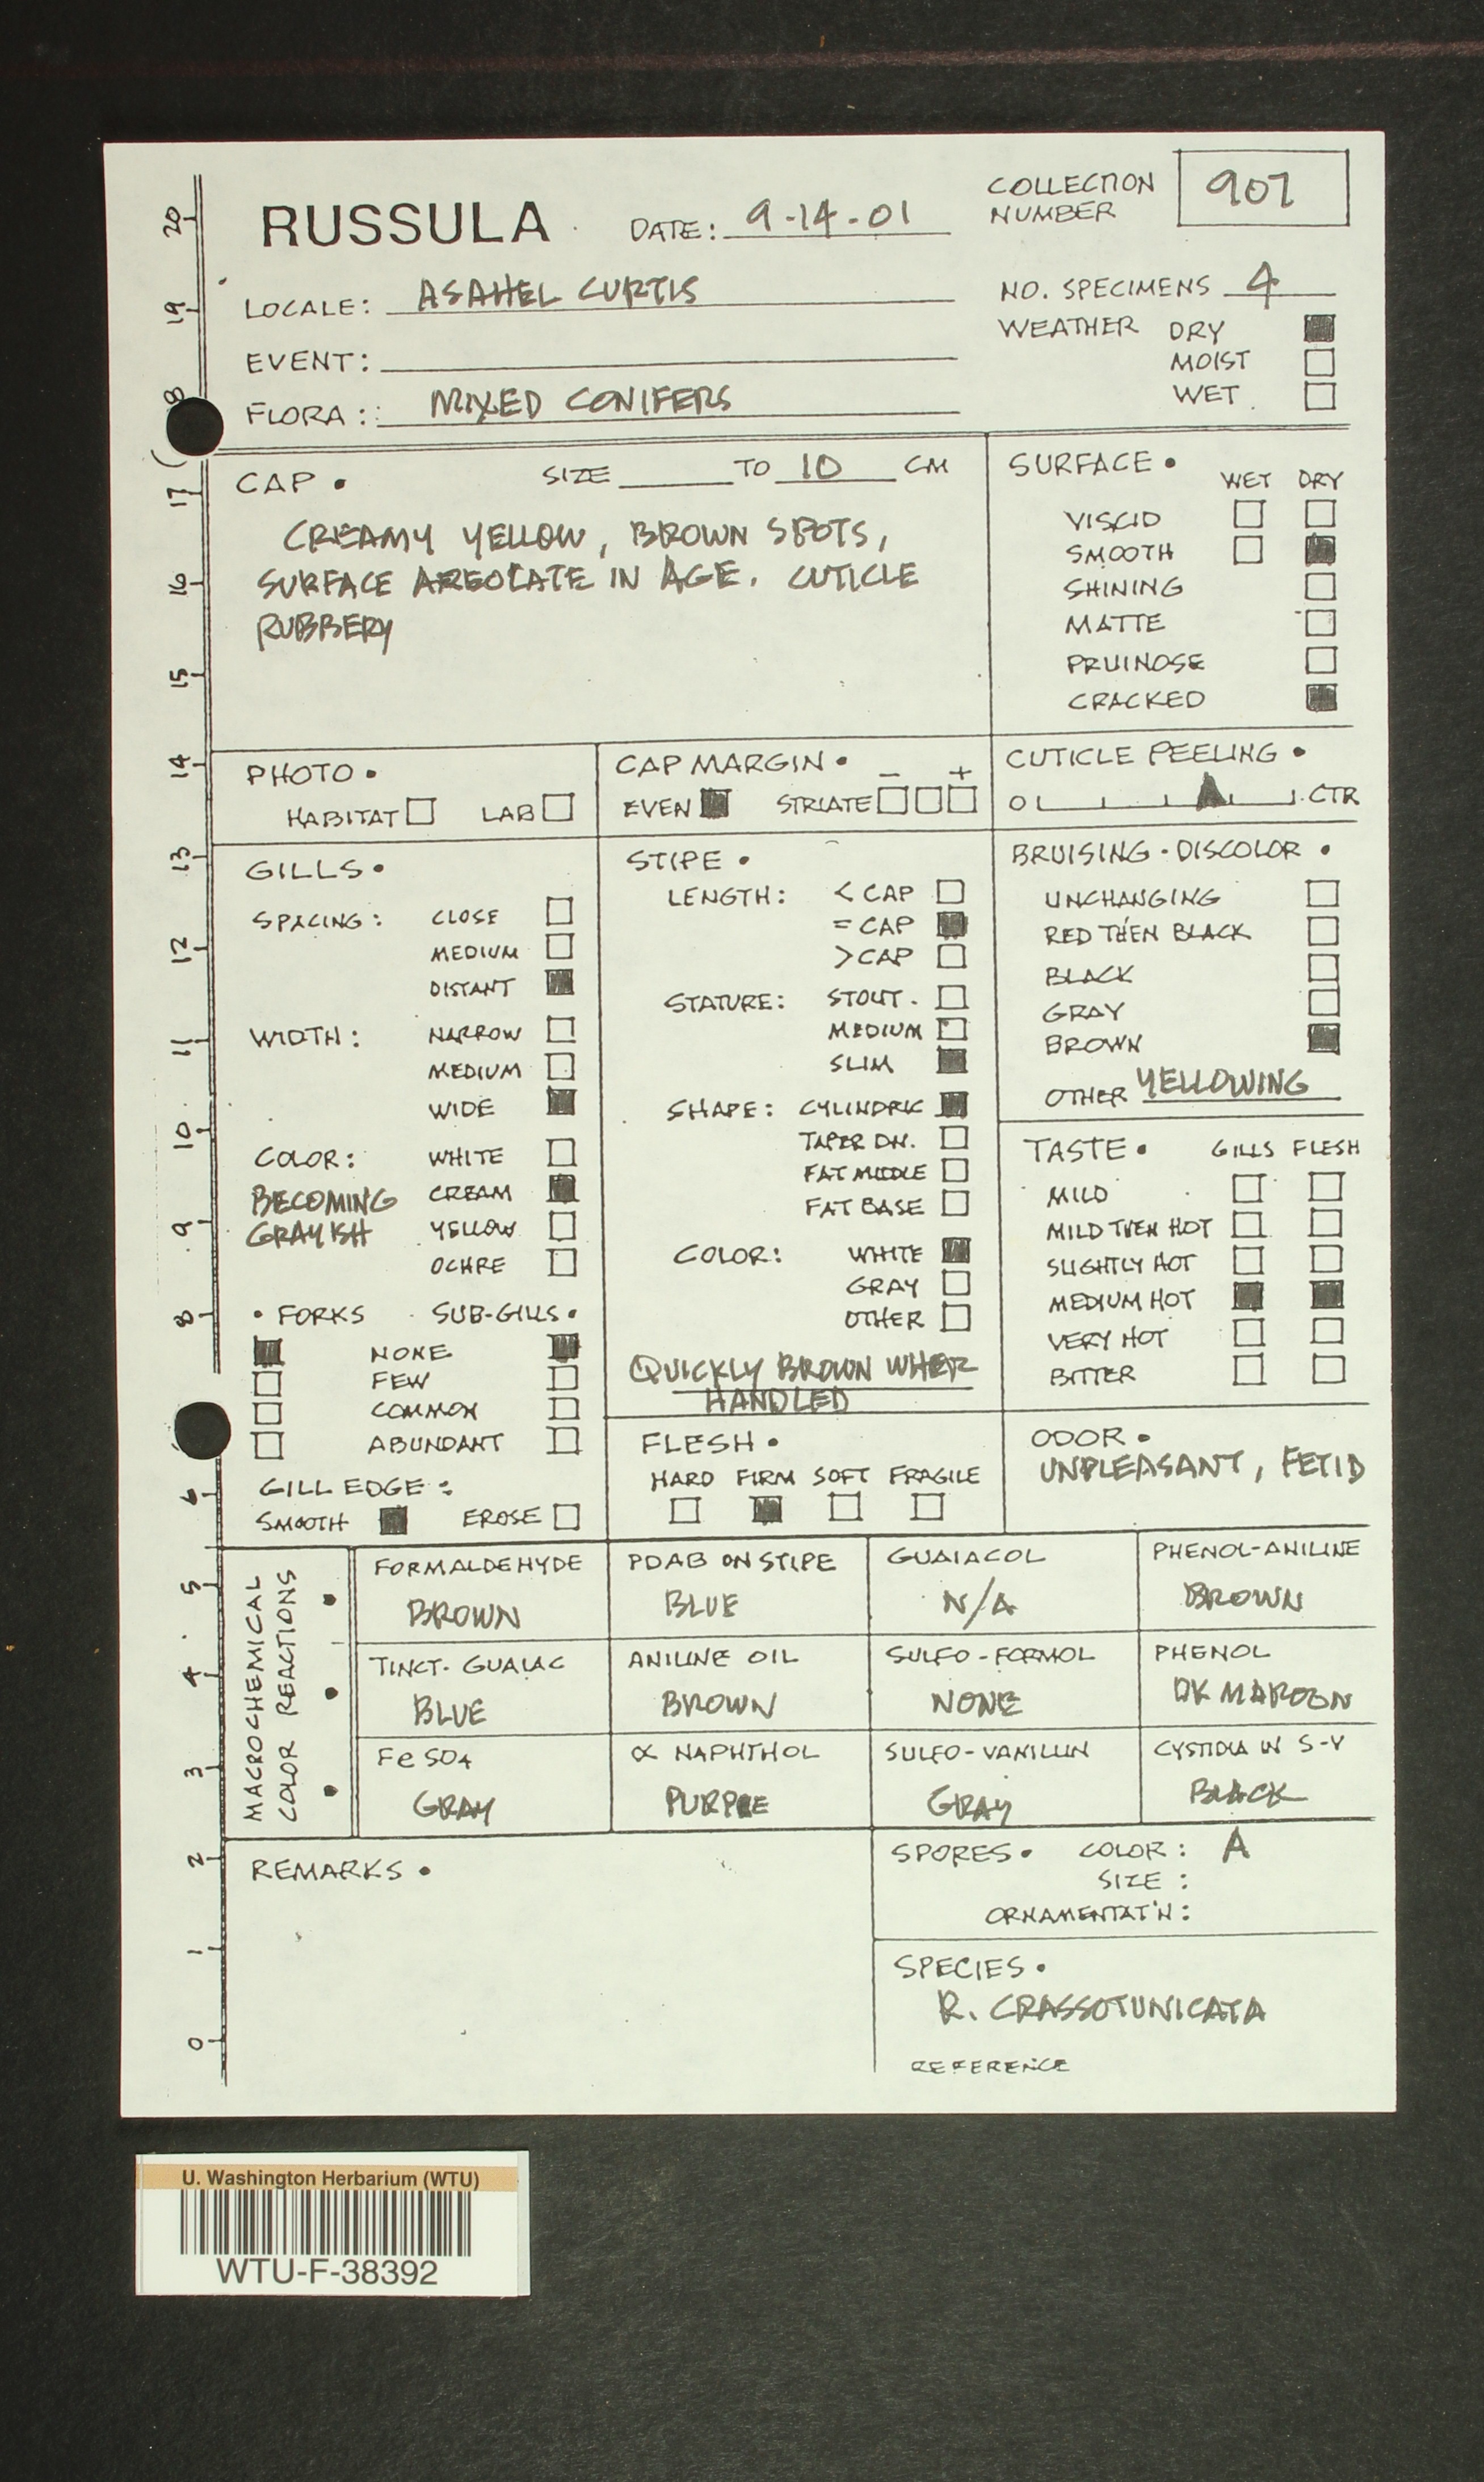 RUSSULA
DATE: 9-14-01
COLLECTION NUMBER 907
LOCALE: ASAHEL CURTIS
NO. SPECIMENS 4
EVENT:
WEATHER DRY
MOIST
WET
FLORA: MIXED CONIFERS
CAP • SIZE TO 10 CM
CREAMY YELLOW, BROWN SPOTS,
SURFACE AREOLATE IN AGE. CUTICLE
RUBBERY
SURFACE •
WET DRY
VISCID
SMOOTH
SHINING
MATTE
PRUINOSE
CRACKED
PHOTO •
HABITAT LAB
CAP MARGIN • − +
EVEN STRIATE
CUTICLE PEELING •
0 CTR
GILLS •
SPACING: CLOSE
MEDIUM
DISTANT
WIDTH: NARROW
MEDIUM
WIDE
COLOR: WHITE
BECOMING CREAM
GRAYISH YELLOW
OCHRE
• FORKS SUB-GILLS •
NONE
FEW
COMMON
ABUNDANT
GILL EDGE:
SMOOTH EROSE
STIPE •
LENGTH: < CAP
= CAP
> CAP
STATURE: STOUT.
MEDIUM
SLIM
SHAPE: CYLINDRIC
TAPER DN.
FAT MIDDLE
FAT BASE
COLOR: WHITE
GRAY
OTHER
QUICKLY BROWN WHER
HANDLED
FLESH •
HARD FIRM SOFT FRAGILE
BRUISING - DISCOLOR •
UNCHANGING
RED THEN BLACK
BLACK
GRAY
BROWN
OTHER YELLOWING
TASTE • GILLS FLESH
MILD
MILD THEN HOT
SLIGHTLY HOT
MEDIUM HOT
VERY HOT
BITTER
ODOR •
UNPLEASANT, FETID
MACROCHEMICAL
COLOR REACTIONS
FORMALDEHYDE
BROWN
PDAB ON STIPE
BLUE
GUAIACOL
N/A
PHENOL-ANILINE
BROWN
TINCT. GUAIAC
BLUE
ANILINE OIL
BROWN
SULFO-FORMOL
NONE
PHENOL
DK MAROON
FeSO4
GRAY
α NAPHTHOL
PURPLE
SULFO-VANILLIN
GRAY
CYSTIDIA IN S-V
BLACK
REMARKS •
SPORES • COLOR: A
SIZE:
ORNAMENTAT'N:
SPECIES •
R. CRASSOTUNICATA
REFERENCE
20
19
8
17
16
15
14
13
12
11
10
9
8
6
5
4
3
2
1
0
U. Washington Herbarium (WTU)
WTU-F-38392